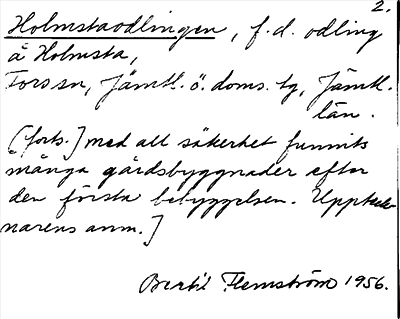 2.
Holmstaodlingen, f.d. odling
å Holmsta,
Fors sn, Jämtl. ö. doms. tg, Jämtl.
län.
[forts.] med all säkerhet funnits
många gårdsbyggnader efter
den första bebyggelsen. Uppteck-
narens anm.]
Bertil Flemström 1956.